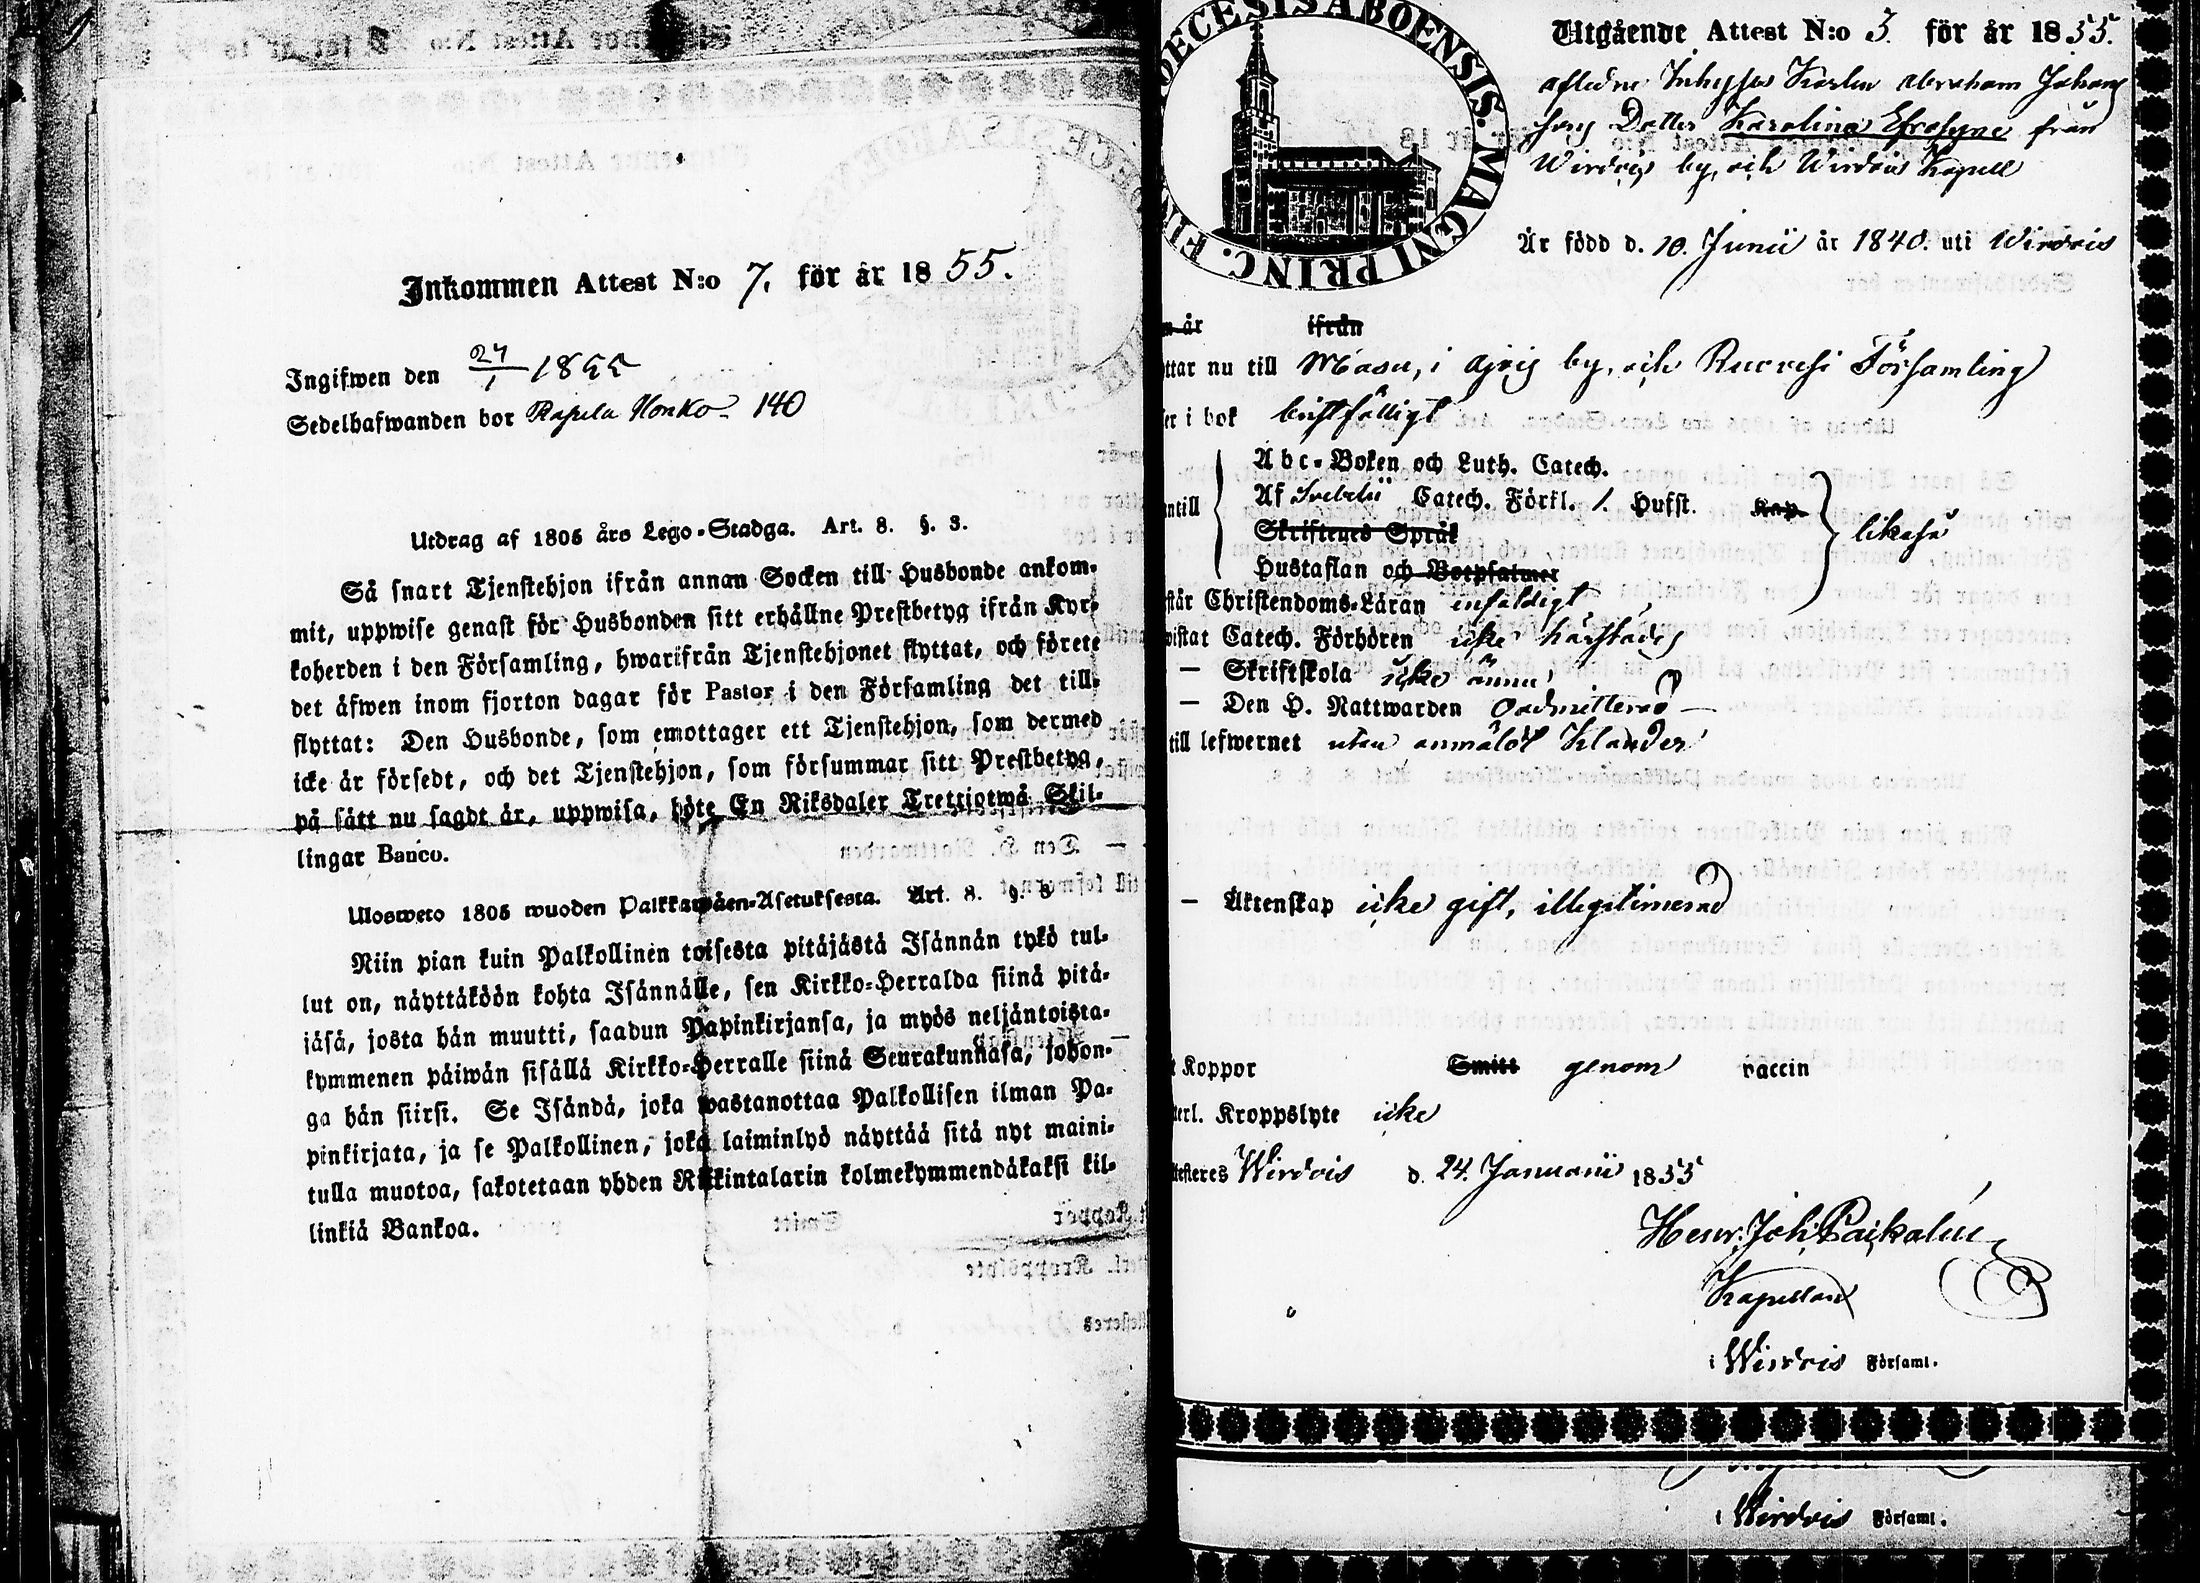 Inkommen Attest N:o 7. för år 1855.
Ingifwen den 27/1 1855
Sedelhafwanden bor Rapila Honko 140
Utdrag af 1805 års Lego-Stadga. Art. 8. §. 3.
Så snart Tjenstehjon ifrån annan Socken till Husbonde ankom-
mit, uppwise genast för Husbonden sitt erhållne Prestbetyg ifrån Kyr-
koherden i den Församling, hwarifrån Tjenstehjonet flyttat, och förete
det äfwen inom fjorton dagar för Pastor i den Församling det till-
flyttat: Den Husbonde, som emottager ett Tjenstehjon, som dermed
icke är försedt, och det Tjenstehjon, som försummar sitt Prestbetyg,
på sätt nu sagdt är, uppwisa, böte En Riksdaler Trettiotwå Skil-
lingar Banco.
Ulosweto 1805 wuoden Palkkawäen-Asetuksesta. Art. 8. §. 3
Niin pian kuin Palkollinen toisesta pitäjästä Isännän tykö tul-
lut on, näyttäköön kohta Isännälle, sen Kirkko-Herralda siinä pitä-
jäsä, josta hän muutti, saadun Papinkirjansa, ja myös neljäntoista-
kymmenen päiwän sisällä Kirkko-Herralle siinä Seurakunnasa, johon-
ga hän siirsi. Se Isändä, joka wastanottaa Palkollisen ilman Pa-
pinkirjata, ja se Palkollinen, joka laiminlyö näyttää sitä nyt maini-
tulla muotoa, sakotetaan yhden Riikintalarin kolmekymmendäkaksi kil-
linkiä Bankoa.
DIOECESIS ABOENSIS. MAGNI PRINC. FIN
Utgående Attest N:o 3. för år 1855.
afledne Inhyses Karlen Abraham Johans
sons Dotter Karolina Efrosyne från
Wirdois by, och Wirdois Kapell
Är född d. 10. Junii år 1840. uti Wirdois
n år ifrån
ttar nu till Masu, i by, och Ruovesi Församling
er i bok bristfälligt
Abc-Boken och Luth. Catech.
ntill Af Svebelii Catech. Förkl. 1. Hufst. Kap. likaså
Skriftenes Språk
Hustaflan och Botpsalmer
står Christendoms-Läran enfaldigt
wistat Catech. Förhören icke härstädes
— Skriftskola icke ännu
— Den H. Nattwarden Oadmitterad —
till lefwernet utan anmäldt klander
— Äktenskap icke gift, illegitimerad
t Koppor Smitt genom vaccin
terl. Kroppslyte icke
ttesteres Wirdois d. 24. Januarii 1855
Henr. Joh.
Kapellan
i Wirdois Församl.
i Wirdois Församl.